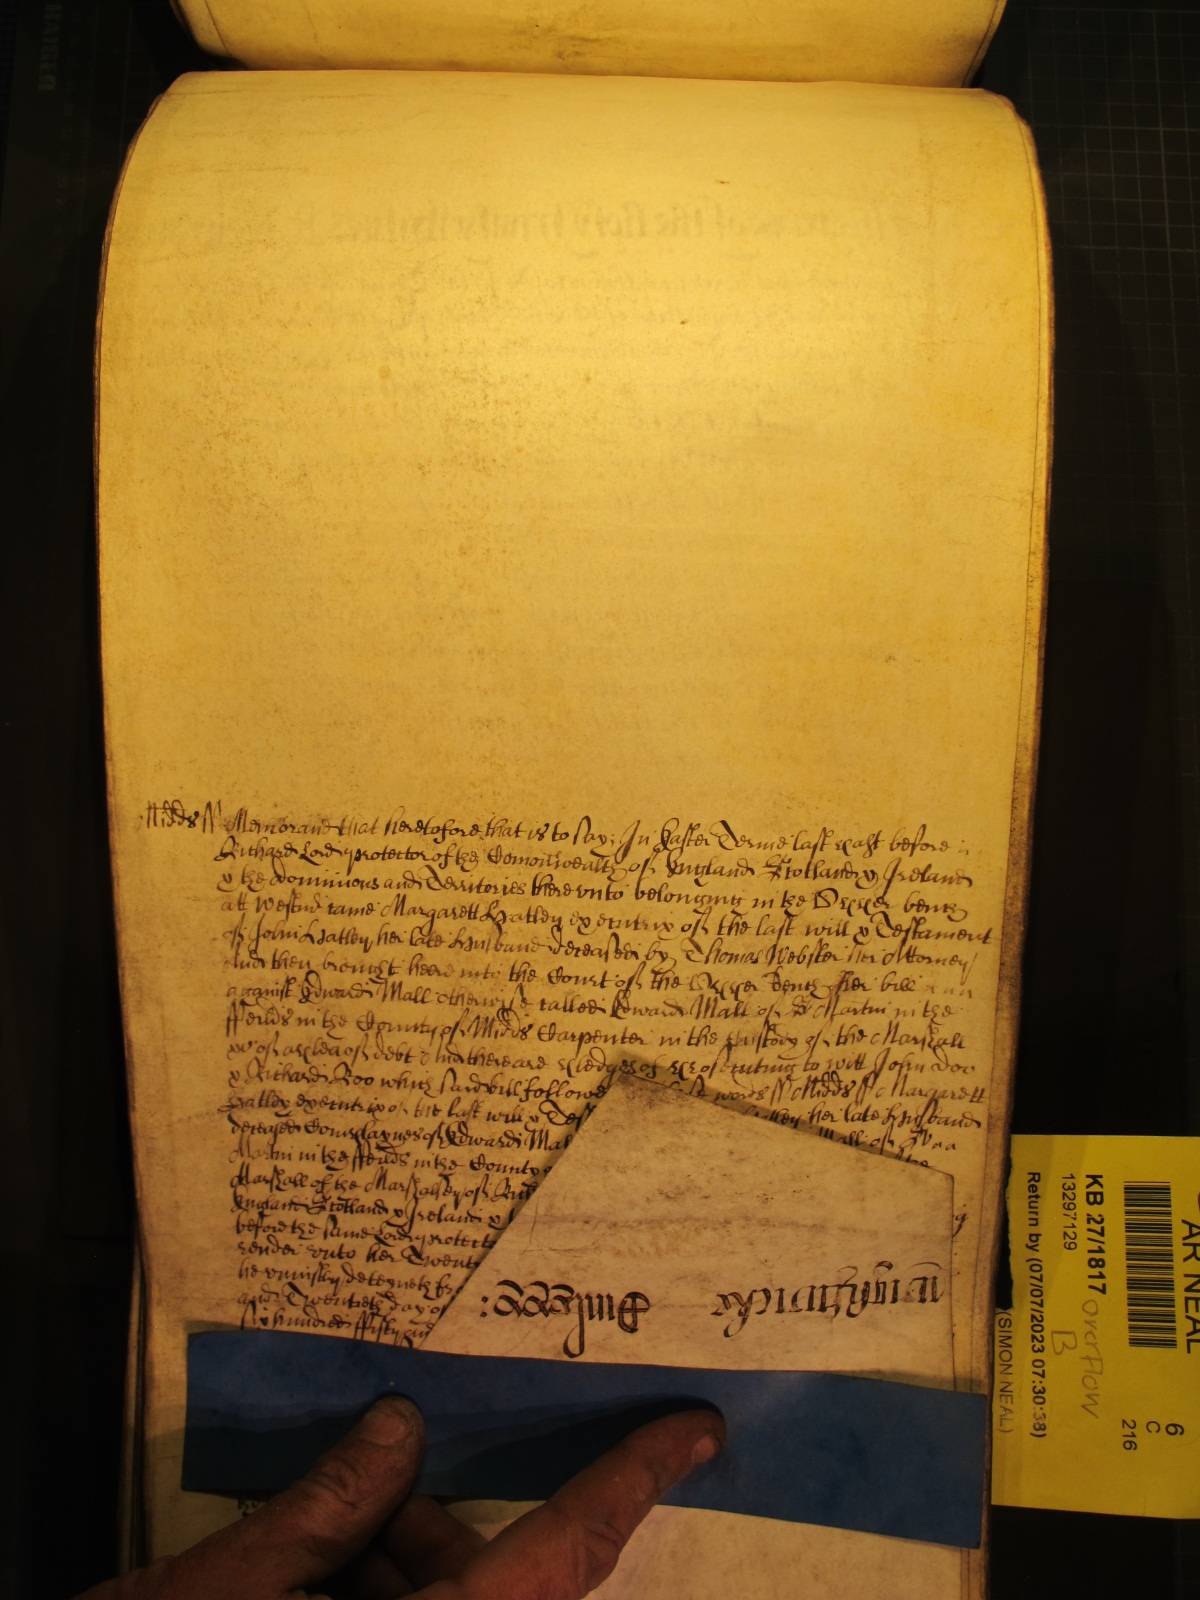 Midds ss Memorand that heretofore that is to say; In Easter Terme last past before
Richard Lord protector of the Comonwealth of England Scotland & Ireland
& the dominions and Territories therevnto belonging in the Vpper bench
att Westm̃ came Margarett Hatley executrix of the last will & Testament
of John Hatley her late husband deceased by Thomas Webster her Attorney
And then brought heere into the Court of the Vpper Bench her bill
against Edward Mall otherwise called Edward Mall of St Martin in the
ffeilds in the County of Midds Carpenter in the custody of the Marshall
&c of a plea of debt And there are pledges of prosecuting to witt John Doo
& Richard Roo which said bill followe words ss Midds ss Margarett
Hatley executrix of the last will & Tes her late husband
deceased Complaynes of Edward Mal Mall of
Martin in the ffeilds in the County o
Marshall of the Marshalsey of Rich
England Scotland & Ireland &
before the same Lord protect
render vnto her Twent
he vniustly deteyneth fr
and Twentieth day o
six hundred ffifty and
KB 27/1817
13297129
Return by (07/07/2023 07:30:38)
(SIMON NEAL)
AR NEAL
overflow
B
6
C
216